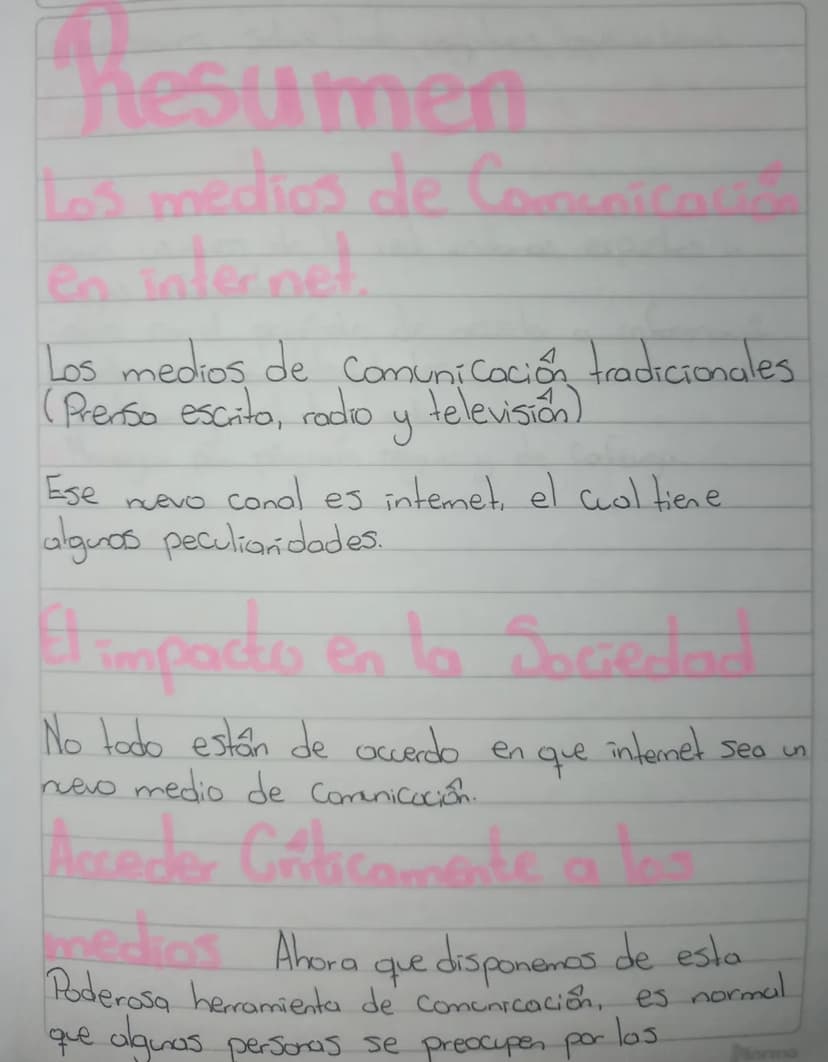 Resumen
Los medios de Comunicación
en internet.
Los medios de comunicación tradicionales
(Prensa escrita, radio y televisión)
Ese nuevo canal es internet, el cual tiene
algunas peculiaridades.
El impacto en la Sociedad
No todo están de acuerdo en que internet sea un
nuevo medio de comunicación.
Acceder Críticamente a los
medios Ahora que disponemos de esta
Poderosa herramienta de comunicación, es normal
que algunas personas se preocupen por las